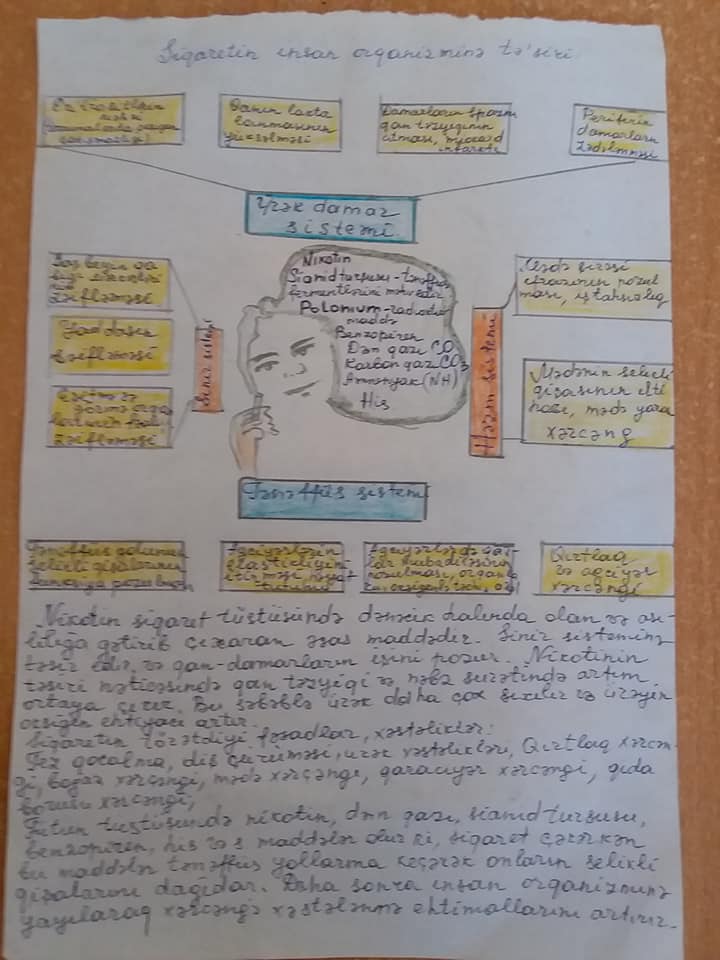 Siqaretin insan orqanizminə tə'siri.
Qanın laxta
lanmasının
yüksəlməsi
Damarların spazmı
qan təzyiqinin
artması, miokard
infarktı
Periferik
damarların
zədələnməsi
Ürək damar
sistemi
Baş beyin qa
zəifləməsi
Yaddaşın
zəifləməsi
Eşitmə və
görmə orqan
larının
zəifləməsi
Sinir sistemi
Nikotin
Sianid turşusu-tənəffüs
fermentlərini məhv edir
Polonium-radioaktiv
maddə
Benzopiren
Dəm qazı CO
Karbon qazı CO2
Ammonyak (NH)
His
Həzm sistemi
Mədə şirəsi
ifrazının pozul
ması, iştahsızlıq
Mədənin selikli
qişasının ilti
habı, mədə yara
xərçəng
Tənəffüs sistemi
Tənəffüs yollarının
selikli qişalarının
funksiya pozulması
Ağciyərlərin
elastikliyini
itirməsi
Ağciyərlərdə qaz
lar mübadiləsinin
pozulması, orqan
Qırtlaq
və ağciyər
xərçəngi
Nikotin siqaret tüstüsündə dənəcik halında olan və ası-
lılığa gətirib çıxaran əsas maddədir. Sinir sisteminə
təsir edir, və qan-damarların işini pozur. Nikotinin
təsiri nəticəsində qan təzyiqi və nəbz surətində artım
ortaya çıxır. Bu səbəblə ürək daha çox sıxılır və ürəyin
oksigen ehtiyacı artır.
Siqaretin törətdiyi fəsadlar, xəstəliklər:
Tez qocalma, diş çürüməsi, ürək xəstəlikləri, Qırtlaq xərçən-
gi, boğaz xərçəngi, mədə xərçəngi, qaraciyər xərçəngi, qida
borusu xərçəngi,
Tütün tüstüsündə nikotin, dəm qazı, sianid turşusu,
benzopiren, his və s maddələr olur ki, siqaret çəkərkən
bu maddələr tənəffüs yollarına keçərək onların selikli
qişalarını dağıdar. Daha sonra insan orqanizminə
yayılaraq xərçəngə xəstələnmə ehtimallarını artırır.